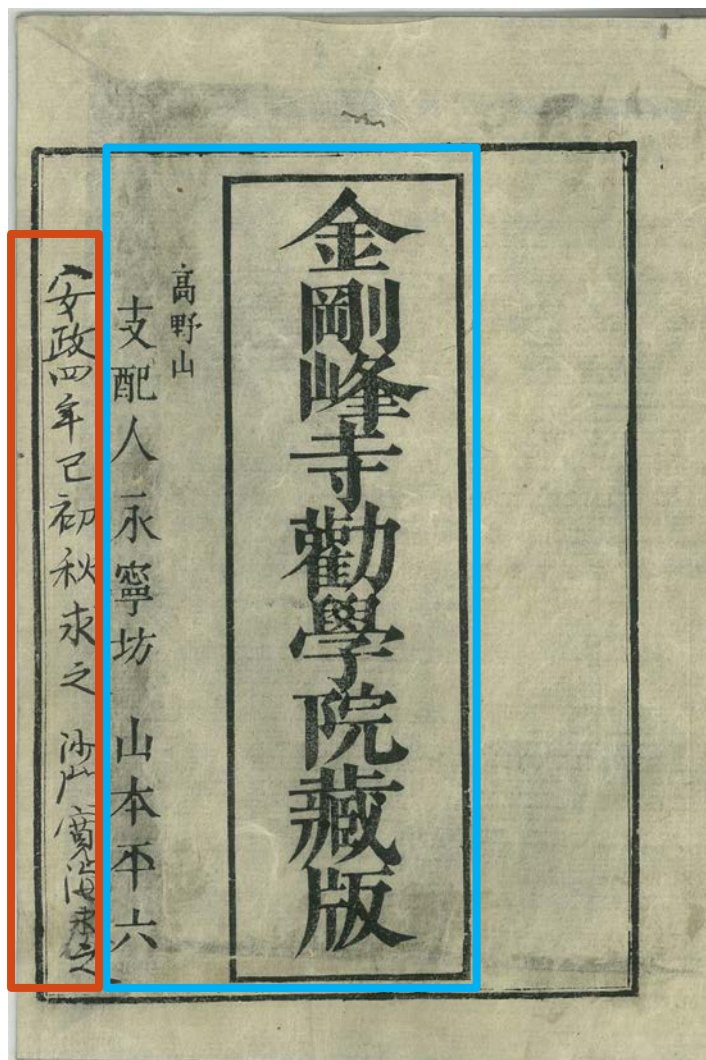 金剛峰寺勸學院藏版
高野山
支配人永寧坊 山本平六
安政四年巳初秋求之 沙門寛海求之